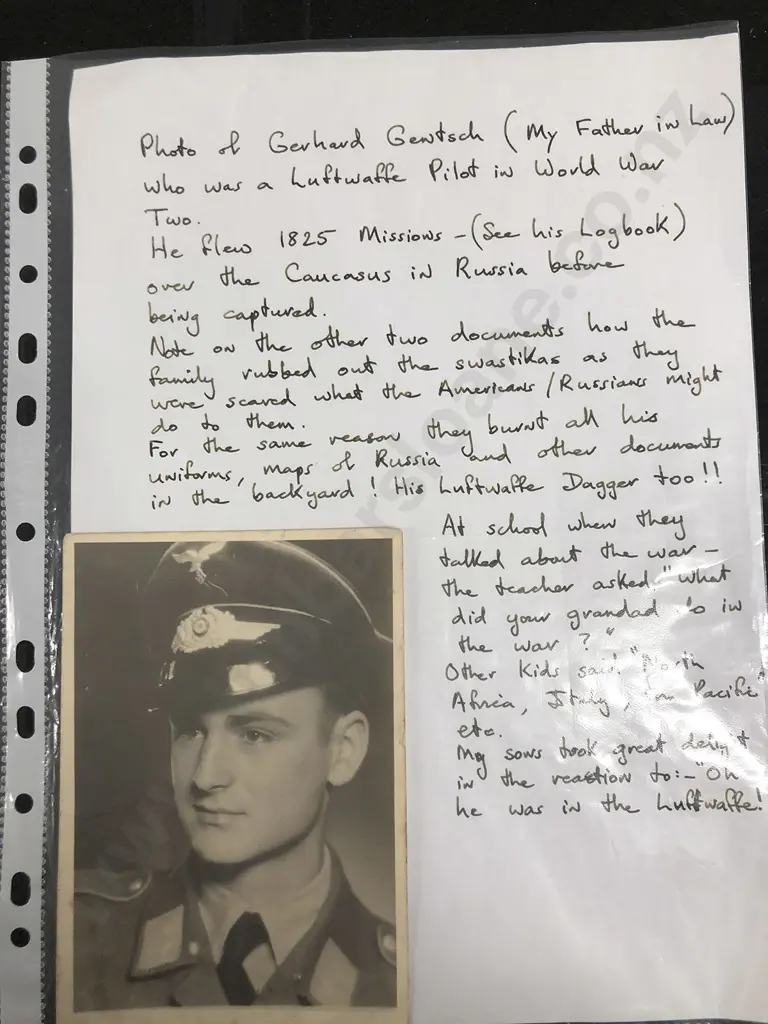 Photo of Gerhard Gentsch (My Father in Law)
who was a Luftwaffe Pilot in World War
Two.
He flew 1825 Missions – (See his Logbook)
over the Caucasus in Russia before
being captured.
Note on the other two documents how the
family rubbed out the swastikas as they
were scared what the Americans/Russians might
do to them.
For the same reason they burnt all his
uniforms, maps of Russia and other documents
in the backyard! His Luftwaffe Dagger too!!
At school when they
talked about the war –
the teacher asked "What
did your grandad do in
the war?"
Other Kids said "North
Africa, Italy, in Pacific"
etc.
My sons took great
in the reaction to:- "Oh
he was in the Luftwaffe!